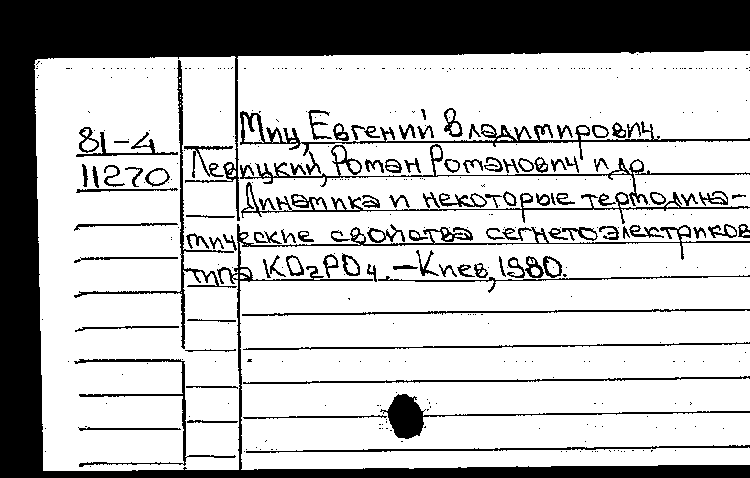 81-4
11270
Миц, Евгений Владимирович.
Левицкий, Роман Романович и др.
Динамика и некоторые термодина-
мические свойства сегнетоэлектриков
типа KD2PO4. - Киев, 1980.